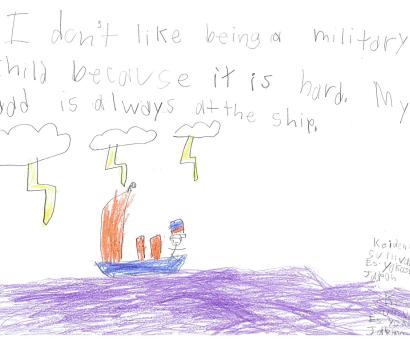 I don't like being a military
child because it is hard. My
dad is always at the ship.
Keiden